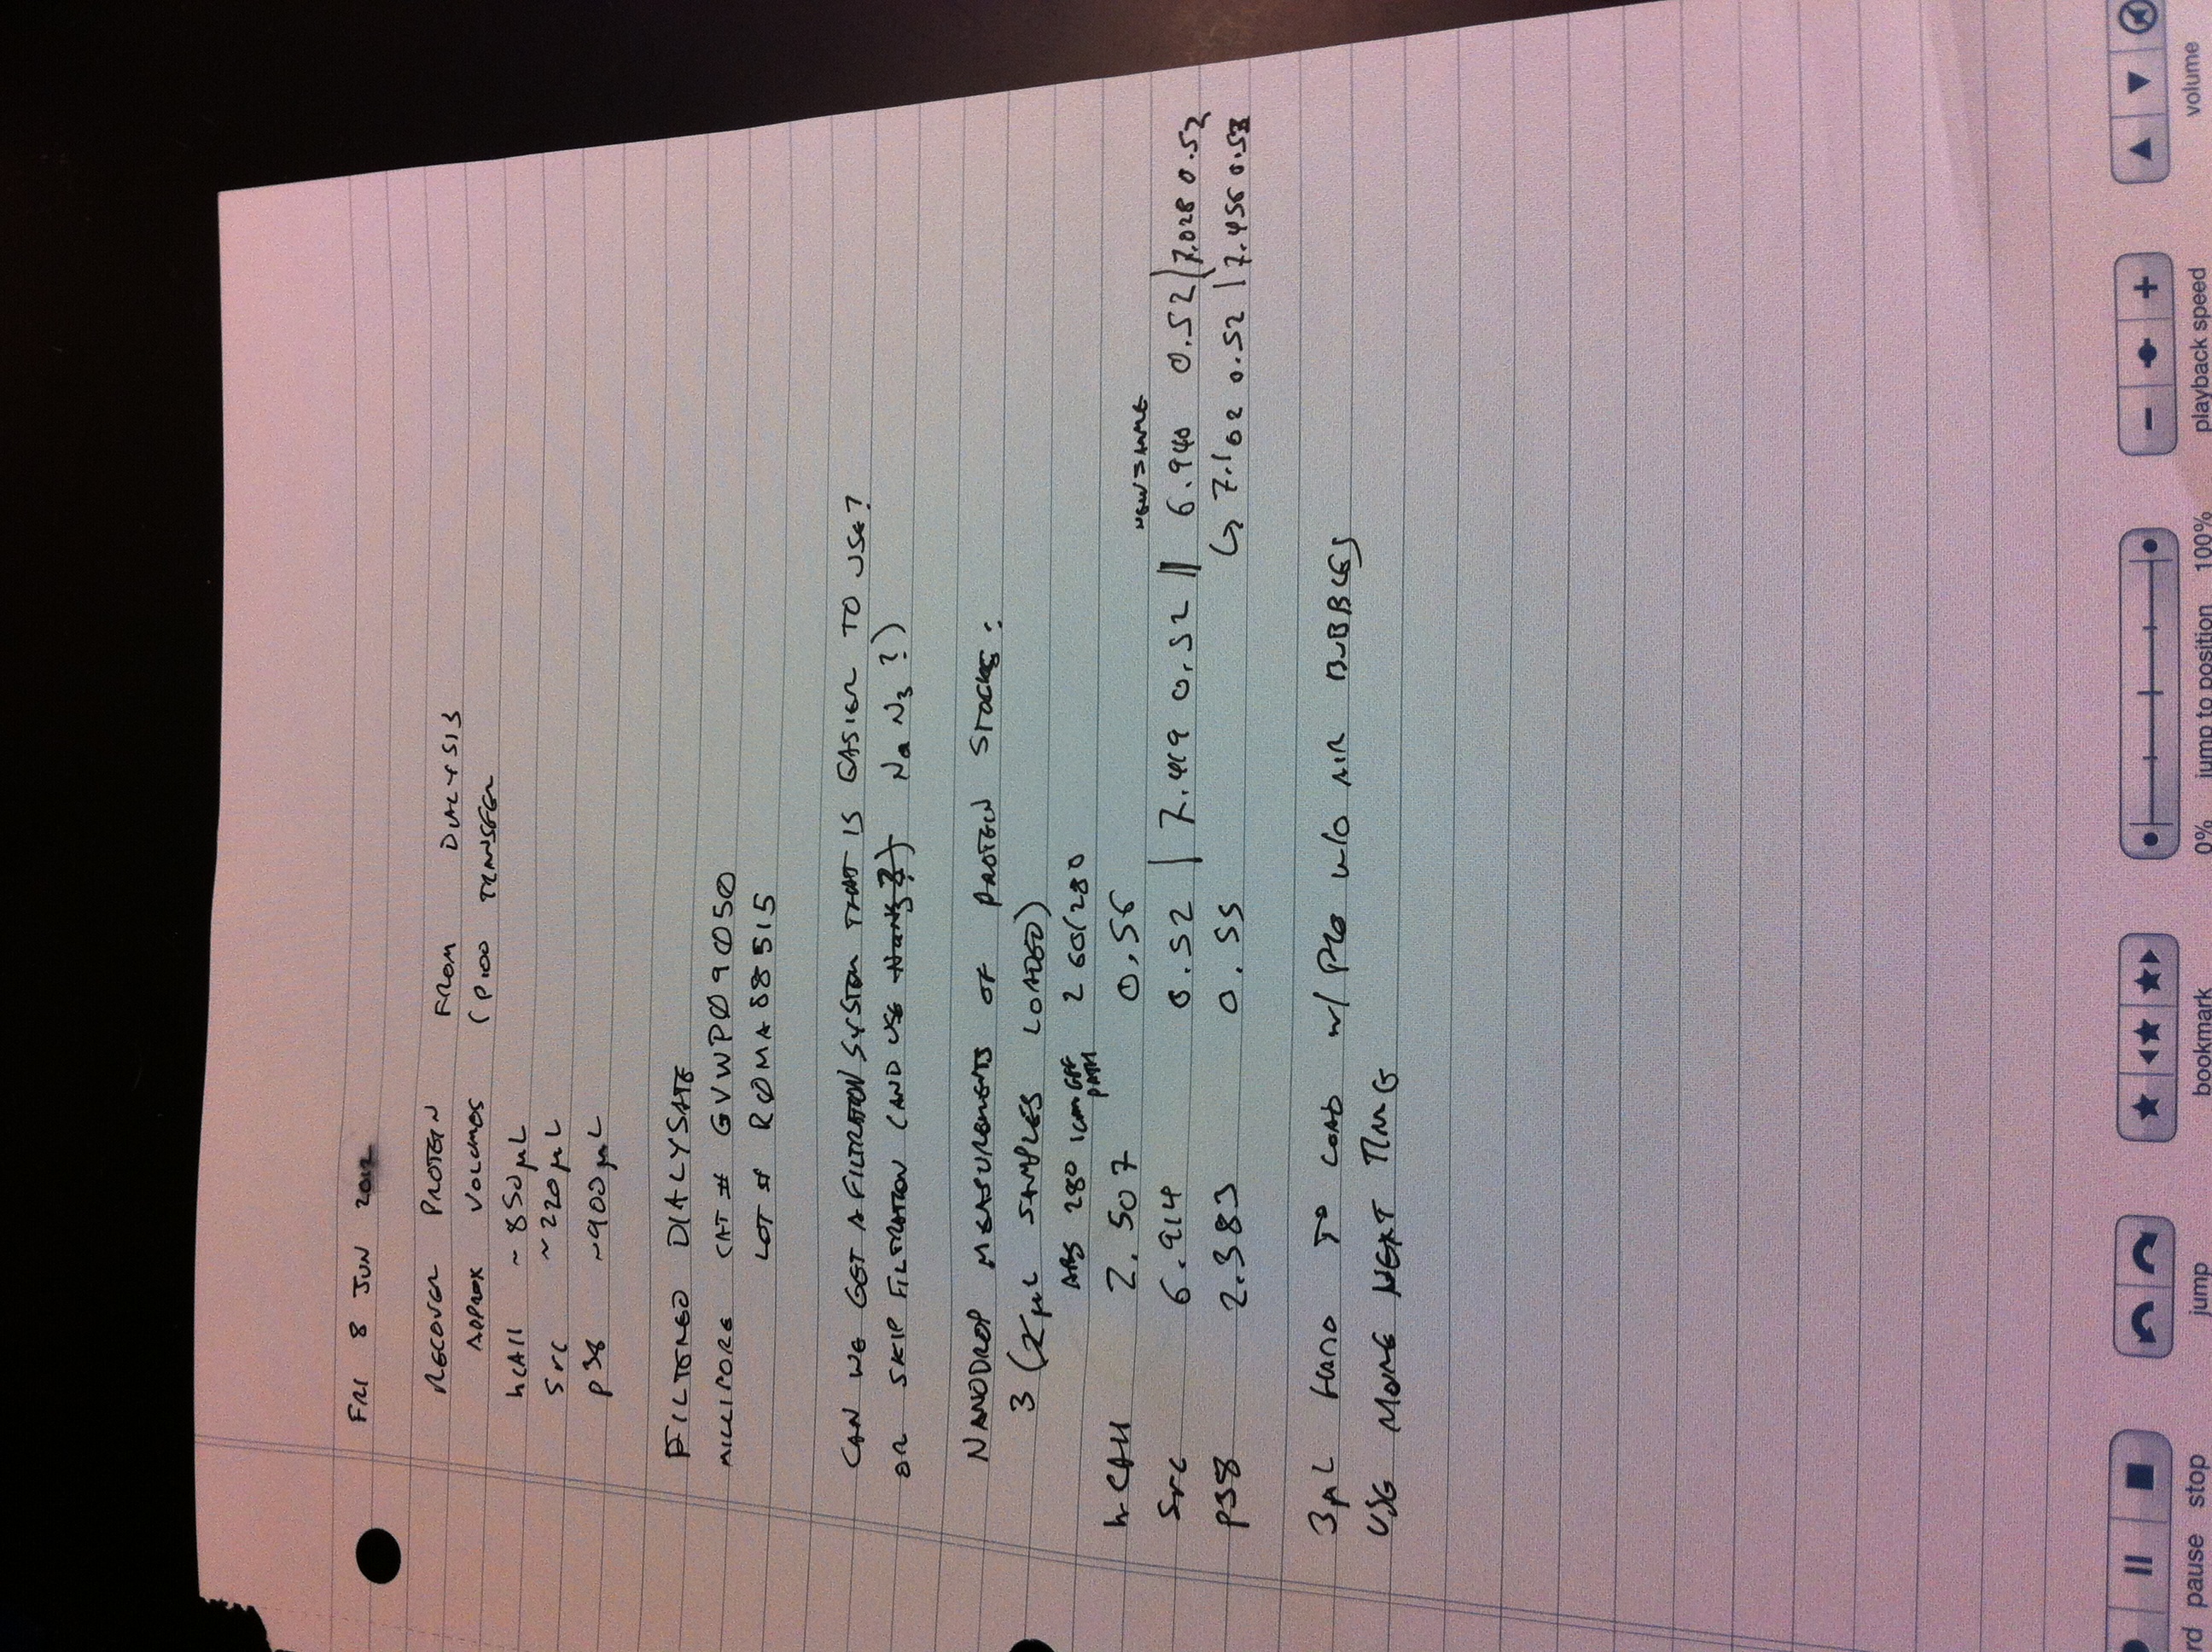 FRI 8 JUN 2012
RECOVER PROTEIN FROM DIALYSIS
APPROX VOLUMES (P100 TRANSFER
hCAII ~850µL
Src ~220µL
p38 ~900µL
FILTERED DIALYSATE
MILLIPORE CAT # GVWPØ9Ø5Ø
LOT # RØMA88515
CAN WE GET A FILTRATION SYSTEM THAT IS EASIER TO USE?
OR SKIP FILTRATION (AND USE NaN3?) NaN3?)
NANODROP MEASUREMENTS OF PROTEIN STOCKS:
3 (2µL SAMPLES LOADED)
ABS 280 1cm EFF PATH 260/280
hCAII 2.507 0.56
NEW SAMPLE
Src 6.914 0.52 | 7.419 0.52 || 6.940 0.52 | 7.028 0.52
p38 2.383 0.55 ↳ 7.102 0.52 | 7.456 0.53
3µL HARD TO LOAD w/ P20 w/o AIR BUBBLES
USE MORE NEXT TIME
rd pause stop jump bookmark 0% jump to position 100% playback speed volume